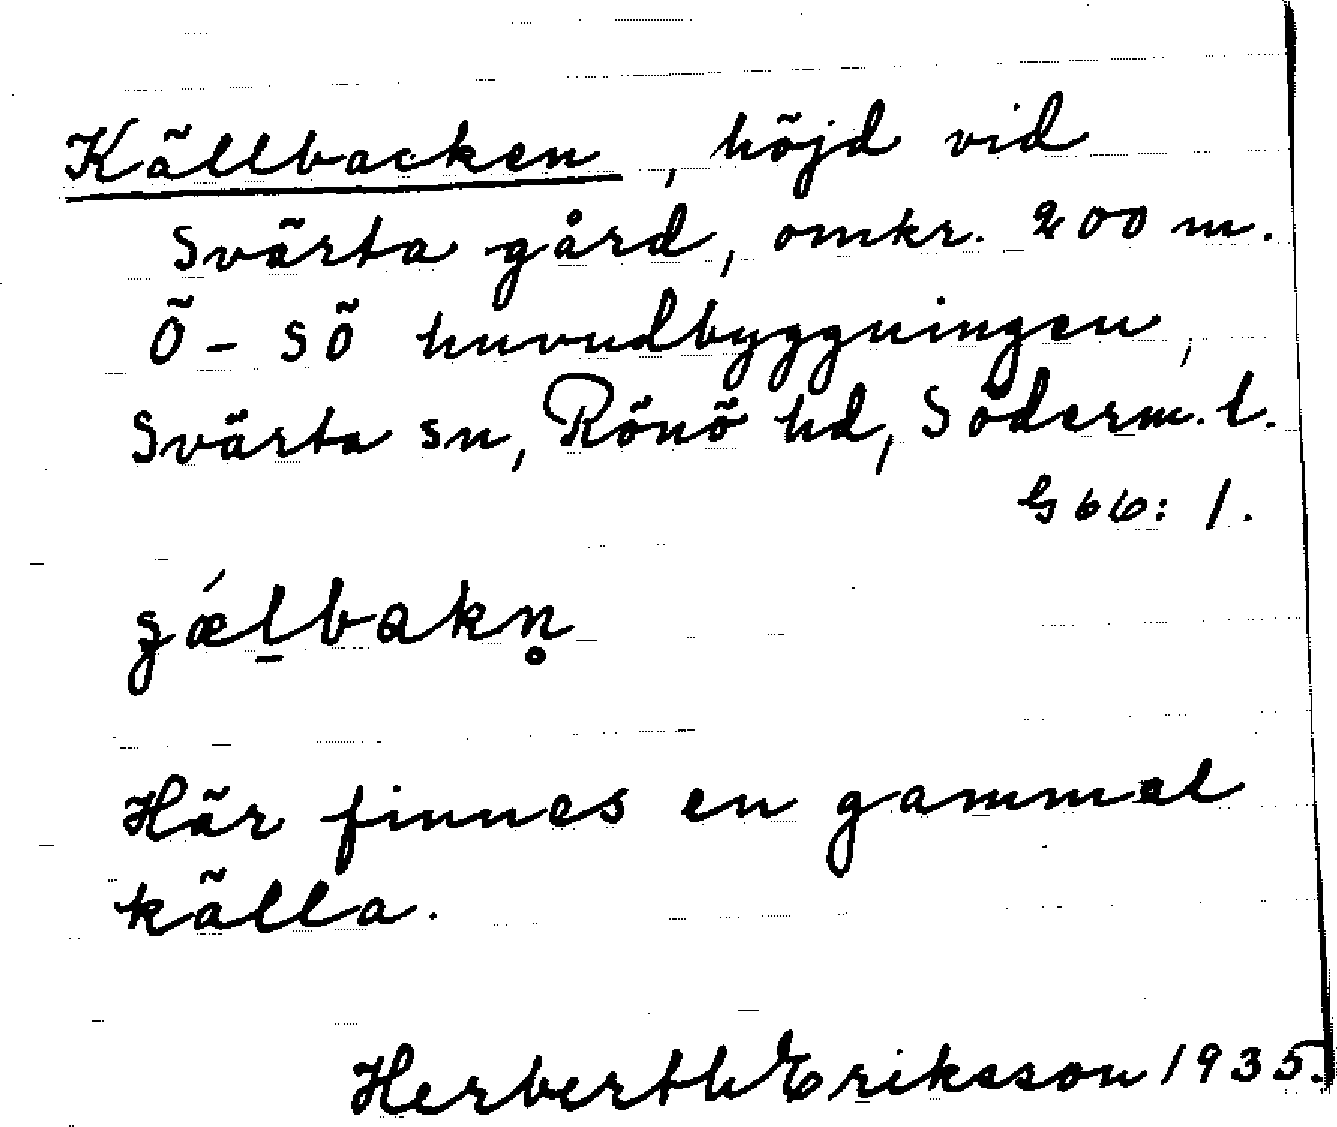 Källbacken, höjd vid
Svärta gård, omkr. 200 m.
Ö - SÖ huvudbyggningen,
Svärta sn, Rönö hd, Söderm. l.
G66: 1.
ʒǽl̠bakn̥
Här finnes en gammal
källa.
Herberth Eriksson 1935.